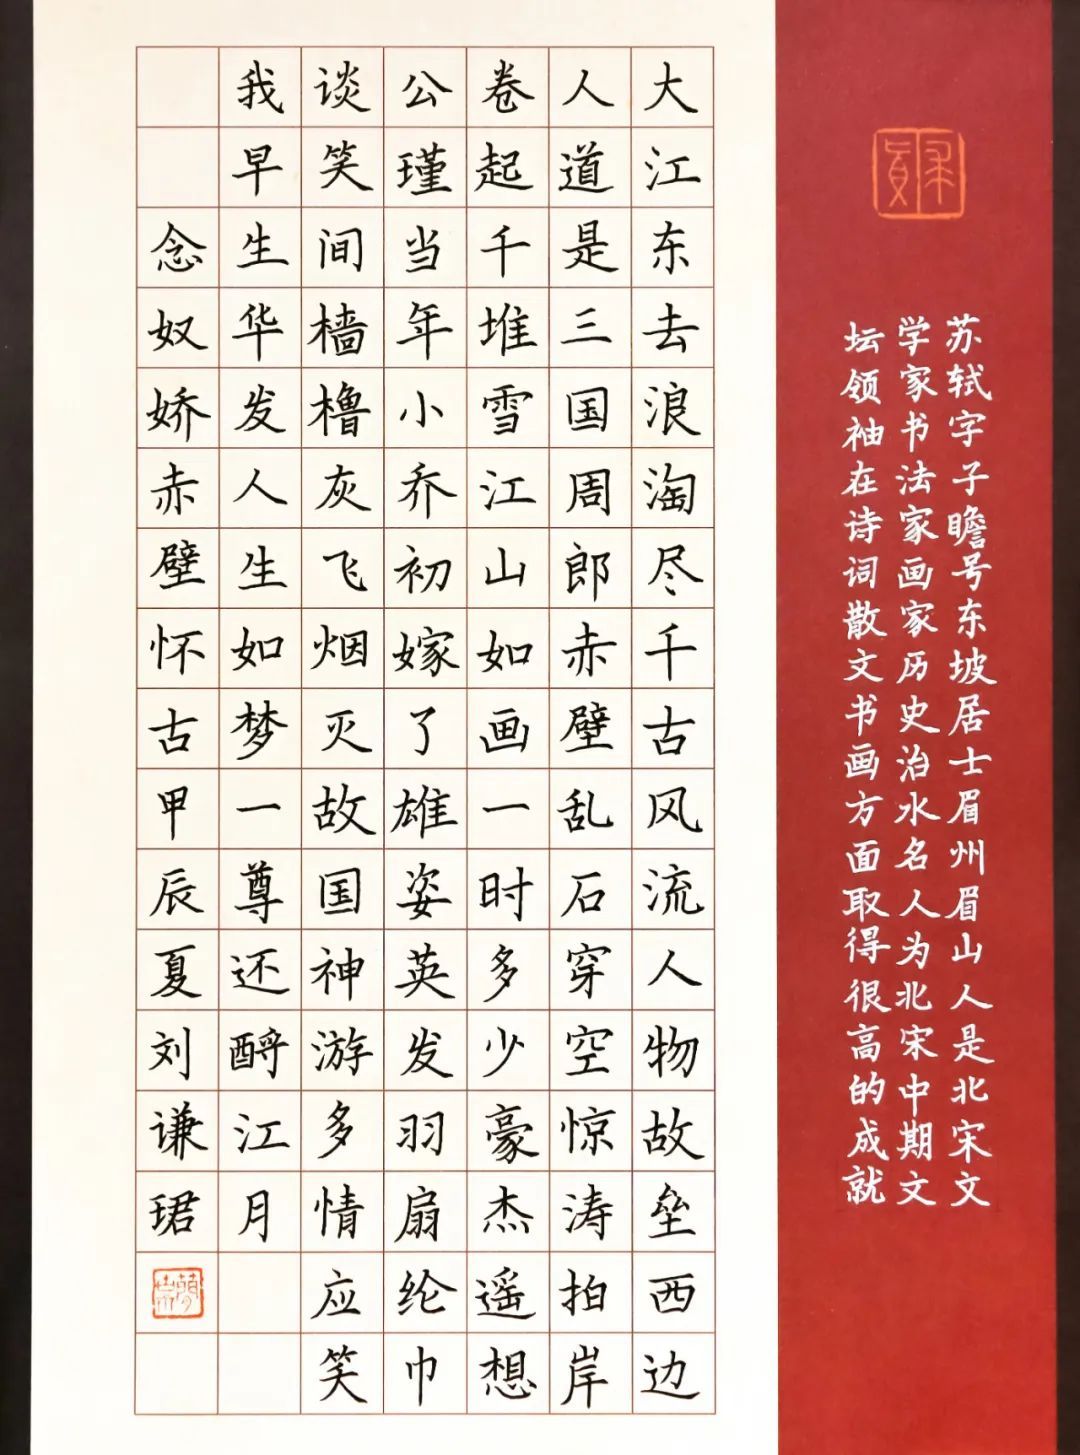 苏轼字子瞻号东坡居士眉州眉山人是北宋文
学家书法家画家历史治水名人为北宋中期文
坛领袖在诗词散文书画方面取得很高的成就
大江东去浪淘尽千古风流人物故垒西边
人道是三国周郎赤壁乱石穿空惊涛拍岸
卷起千堆雪江山如画一时多少豪杰遥想
公瑾当年小乔初嫁了雄姿英发羽扇纶巾
谈笑间樯橹灰飞烟灭故国神游多情应笑
我早生华发人生如梦一尊还酹江月
念奴娇赤壁怀古甲辰夏刘谦珺